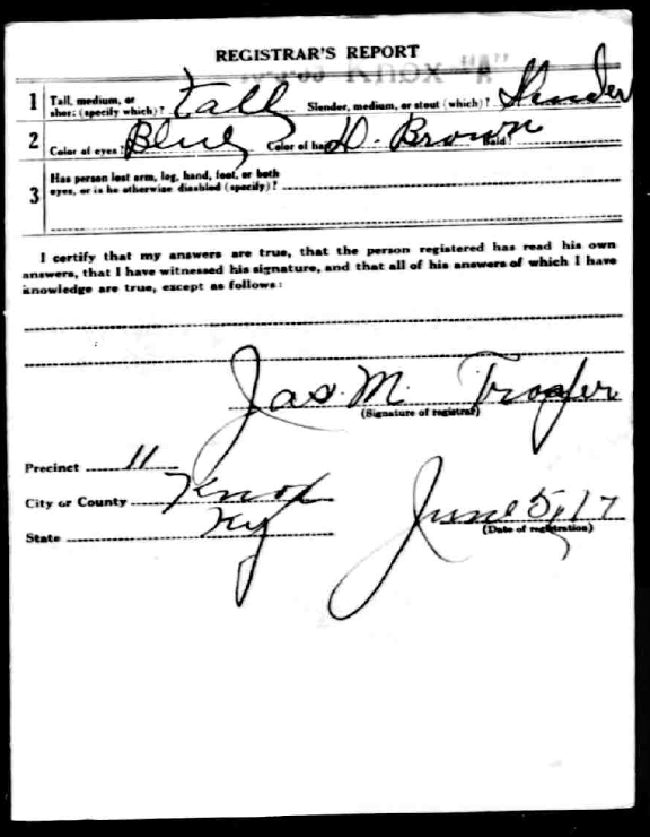 REGISTRAR'S REPORT
1 Tall, medium, or short (specify which)? Tall Slender, medium, or stout (which)? Slender
2 Color of eyes? Blue Color of hair? D. Brown Bald?
3 Has person lost arm, leg, hand, foot, or both eyes, or is he otherwise disabled (specify)?
I certify that my answers are true, that the person registered has read his own
answers, that I have witnessed his signature, and that all of his answers of which I have
knowledge are true, except as follows:
Jas. M.
(Signature of registrar)
Precinct 11
City or County Knox
State Ky
June 5, 17
(Date of registration)